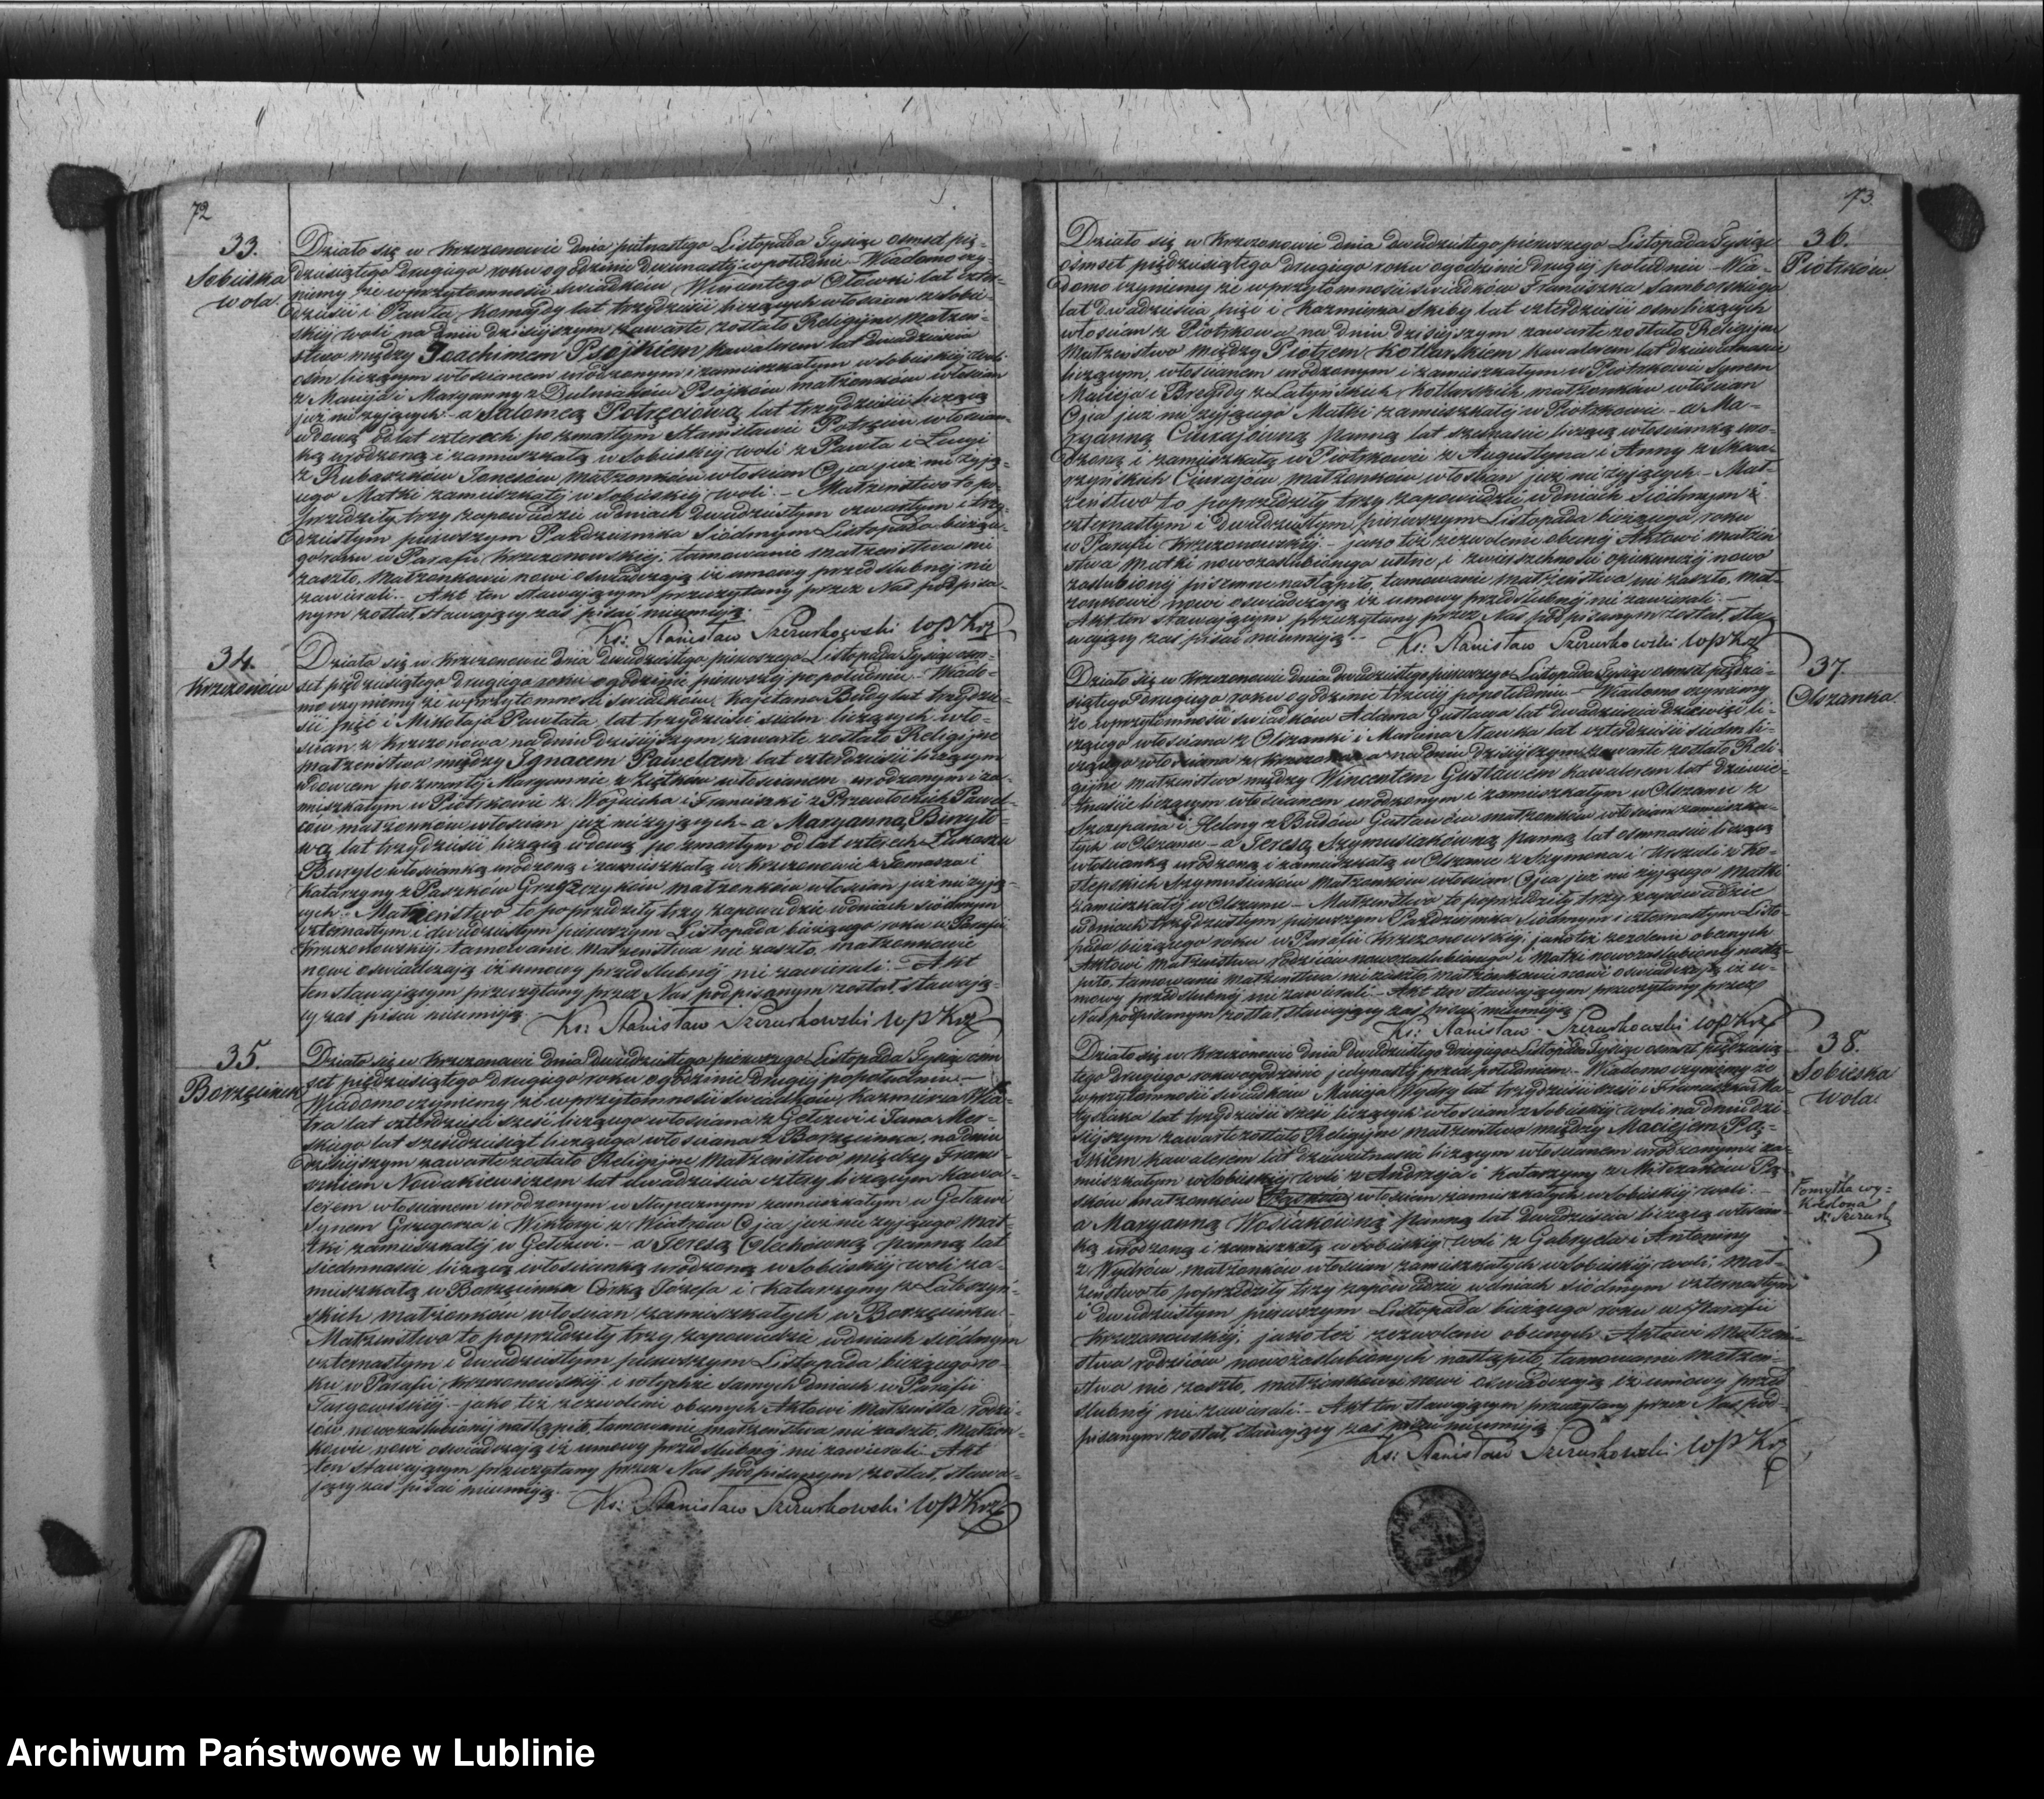 72
33.
Sobieska
wola.
Działo się w Krzczonowie dnia piętnastego Listopada Tysiąc osmset pię-
dziesiątego drugiego roku o godzinie dwunastéj w południe. – Wiadomo czy-
niemy, że w przytomności świadków Wincentego Ołówki lat czter-
dzieści i Pawła Komajdy lat trzydzieści liczących włościan z Sobie-
skiéj woli na dniu dzisiéjszym zawarte zostało Religijne Małżeń-
stwo między Joachimem Psójkiem Kawalerem lat dwadzieścia
ośm liczącym włościanem urodzonym i zamieszkałym w Sobieskiéj woli
z Macieja i Maryanny z Dulniaków Psójków małżonków włościan
już nieżyjących – a Salomeą Potręciową lat trzydzieści liczącą
wdową od lat czterech po zmarłym Stanisławie Potręciu włościan-
ką urodzoną i zamieszkałą w Sobieskiéj woli z Pawła i Łucyi
z Rubaszków Jonców małżonków włościan Ojca już nie żyją-
cego Matki zamieszkałéj w Sobieskiéj woli. – Małżeństwo to po-
przedziły trzy zapowiedzie w dniach dwudziestym czwartym i trzy-
dziestym pierwszym Października siódmym Listopada bieżące-
go roku w Parafii Krzczonowskiéj; tamowanie małżeństwa nie
zaszło. Małżonkowie nowi oświadczają iż umowy przedślubnéj nie
zawierali. – Akt ten stawającym przeczytany przez Nas podpisa-
nym został, stawający zaś pisać nieumieją. –
Ks: Stanisław Szeruchowski WPKrz
34.
Krzczonów
Działo się w Krzczonowie dnia dwudziestego pierwszego Listopada Tysiąc osm-
set pięćdziesiątego drugiego roku o godzinie pierwszéj po południu. – Wiado-
mo czyniemy że w przytomności świadków Kajetana Budy lat trzydzie-
ści pięć i Mikołaja Pawłata lat trzydzieści siedm liczących wło-
ścian z Krzczonowa na dniu dzisiéjszym zawarte zostało Religijne
małżeństwo między Ignacem Pawelcem lat czterdzieści liczącym
wdowcem po zmarłéj Maryannie z Ziętków włościanem urodzonym i za-
mieszkałym w Piotrkowie z Wojciecha i Franciszki z Przewłockich Pawel-
ców małżonków włościan już nieżyjących – a Maryanną Buryło-
wą lat trzydzieści liczącą wdową po zmarłym od lat czterech Łukaszu
Buryle włościanką urodzoną i zamieszkałą w Krzczonowie z Tomasza i
Katarzyny z Paszków Grzeszczyków małżonków włościan już nie żyją-
cych. – Małżeństwo to poprzedziły trzy zapowiedzie w dniach siódmym
czternastym i dwudziestym pierwszym Listopada bieżącego roku w Parafii
Krzczonowskiéj; tamowanie małżeństwa nie zaszło. Małżonkowie
nowi oświadczają iż umowy przedślubnéj nie zawierali. – Akt
ten stawającym przeczytany przez Nas podpisanym został, stawają-
cy zaś pisać nieumieją.
Ks: Stanisław Szeruchowski WPKrz
35.
Borzęcinek
Działo się w Krzczonowie dnia dwudziestego pierwszego Listopada Tysiąc osm
set pięćdziesiątego drugiego roku o godzinie drugiéj popołudniu. –
Wiadomo czyniemy że w przytomności świadków Kazmierza Wia-
tra lat czterdzieści sześć liczącego włościana z Giełczwi i Jana Mer-
skiego lat sześćdziesiąt liczącego włościana z Borzęcinka, na dniu
dzisiéjszym zawarte zostało Religijne Małżeństwo między Fran-
ciszkiem Nowakiewiczem lat dwadzieścia cztery liczącym Kawa-
lerem włościanem urodzonym w Stupecznym zamieszkałym w Giełczwi
synem Grzegorza i Wiktoryi z Wiatrów Ojca już nie żyjącego Mat-
ki zamieszkałéj w Giełczwi. – a Teresą Olechówną panną lat
siedmnaście liczącą włościanką urodzoną w Sobieskiéj woli za-
mieszkałą w Borzęcinku Córką Józefa i Katarzyny z Laboczyń-
skich małżonków włościan zamieszkałych w Borzęcinku. –
Małżeństwo to poprzedziły trzy zapowiedzie w dniach siódmym
czternastym i dwudziestym pierwszym Listopada bieżącego ro-
ku w Parafii Krzczonowskiéj i w tychże samych dniach w Parafii
Targowiskiéj – jako też zezwolenie obecnych Aktowi Małżeństwa rodzi-
ców nowozaślubionéj nastąpiło, tamowanie małżeństwa nie zaszło. Małżon-
kowie nowi oświadczają iż umowy przedślubnéj nie zawierali. Akt
ten stawającym przeczytany przez Nas podpisanym został, stawa-
jący zaś pisać nieumieją.
Ks: Stanisław Szeruchowski WPKrz
73.
36.
Piotrków
Działo się w Krzczonowie dnia dwudziestego pierwszego Listopada Tysiąc
ośmset pięćdziesiątego drugiego roku o godzinie drugiéj południu – Wia-
domo czyniemy że w przytomności świadków Franciszka Samborskiego
lat dwadzieścia pięć i Kazmierza Skiby lat czterdzieści osm liczących
włościan z Piotrkowa na dniu dzisiéjszym zawarte zostało Religijne
Małżeństwo między Piotrem Kotlarskiem Kawalerem lat dziewietnaście
liczącym, włościanem urodzonym i zamieszkałym w Piotrkowie synem
Macieja i Bregidy z Łatyńskich Kotlarskich małżonków włościan
Ojca już nie żyjącego Matki zamieszkałéj w Piotrkowie – a Ma-
ryanną Ciurajówną Panną lat szesnaście liczącą włościanką uro-
dzoną i zamieszkałą w Piotrkowie z Augustyna i Anny z Skwa-
rzyńskich Ciurajów małżonków włościan już nie żyjących. – Mał-
żeństwo to poprzedziły trzy zapowiedzie w dniach siódmym
czternastym i dwudziestym pierwszym Listopada bieżącego roku
w Parafii Krzczonowskiéj. – jako też zezwolenie obecnéj Aktowi małżeń
stwa Matki nowozaślubionego ustne, i zwierzchności opiekunczéj nowo
zaślubionéj piśmienne nastąpiło, tamowanie małżeństwa nie zaszło. Mał-
żonkowie nowi oświadczają iż umowy przedślubnéj nie zawierali. –
Akt ten stawającym przeczytany przez Nas podpisanym został, sta-
wający zaś pisać nieumieją. –
Ks: Stanisław Szeruchowski WPKrz
37.
Olszanka.
Działo się w Krzczonowie dnia dwudziestego pierwszego Listopada Tysiąc osmset pięćdzie-
siątego drugiego roku o godzinie trzeciéj popołudniu. – Wiadomo czyniemy
że w przytomności świadków Adama Gustawa lat dwadzieścia dziewięć li-
czącego włościana z Olszanki i Marcina Sławka lat czterdzieści siedm li-
czącego włościana z Krzczonowa na dniu dzisiéjszym zawarte zostało Reli-
gijne małżeństwo między Wincentem Gustawem Kawalerem lat dziewie-
tnaście liczącym włościanem urodzonym i zamieszkałym w Olszance z
Szczepana i Heleny z Budów Gustawów małżonków włościan zamieszka-
łych w Olszance – a Teresą Szymusiakówną panną lat osmnaście liczącą
włościanką urodzoną i zamieszkałą w Olszance z Szymona i Urszuli z Ko-
ślepskich Szymusiaków małżonków włościan Ojca już nie żyjącego Matki
zamieszkałéj w Olszance – Małżeństwo to poprzedziły trzy zapowiedzie
w dniach trzydziestym pierwszym Października siódmym i czternastym Listo-
pada bieżącego roku w Parafii Krzczonowskiéj; jako też zezwolenie obecnych
Aktowi małżeństwa rodziców nowozaślubionego i matki nowozaślubionéj nastą-
piło, tamowanie małżeństwa nie zaszło, małżonkowie nowi oświadczają iż u-
mowy przedślubnéj nie zawierali – Akt ten stawającym przeczytany przez
Nas podpisanym został, stawający zaś pisać nieumieją
Ks: Stanisław Szeruchowski WPKrz
38.
Sobieska
Wola
Działo się w Krzczonowie dnia dwudziestego drugiego Listopada Tysiąc osmset pięćdziesią
tego drugiego roku o godzinie jedynastéj przed południem. – Wiadomo czyniemy że
w przytomności świadków Macieja Wydry lat trzydzieści sześć i Franciszka Ma-
tysiaka lat trzydzieści sześć liczących włościan z Sobieskiéj woli na dniu dzi-
siéjszym zawarte zostało Religijne małżeństwo między Maciejem Pą-
skiem kawalerem lat dziewietnaście liczącym włościanem urodzonym i za-
mieszkałym w Sobieskiéj woli z Andrzeja i Katarzyny z Misczaków Pą-
sków małżonków włościan zamieszkałych w Sobieskiéj woli. –
a Maryanną Wosiakówną panną lat dwadzieścia liczącą włościan-
ką urodzoną i zamieszkałą w Sobieskiéj woli z Gabryela i Antoniny
z Wydrów, małżonków włościan zamieszkałych w Sobieskiéj woli; Mał-
żeństwo to poprzedziły trzy zapowiedzie w dniach siódmym czternastym
i dwudziestym pierwszym Listopada bieżącego roku w Parafii
Krzczonowskiéj, jako też zezwolenie obecnych Aktowi małżeń-
stwa rodziców nowozaślubionych nastąpiło, tamowanie małżeń-
stwa nie zaszło, małżonkowie nowi oświadczają iż umowy przed
ślubnéj nie zawierali. – Akt ten stawającym przeczytany przez Nas pod-
pisanym został, stawający zaś pisać nieumieją
Ks: Stanisław Szeruchowski WPKrz
Pomyłka wy-
kreślona
Archiwum Państwowe w Lublinie